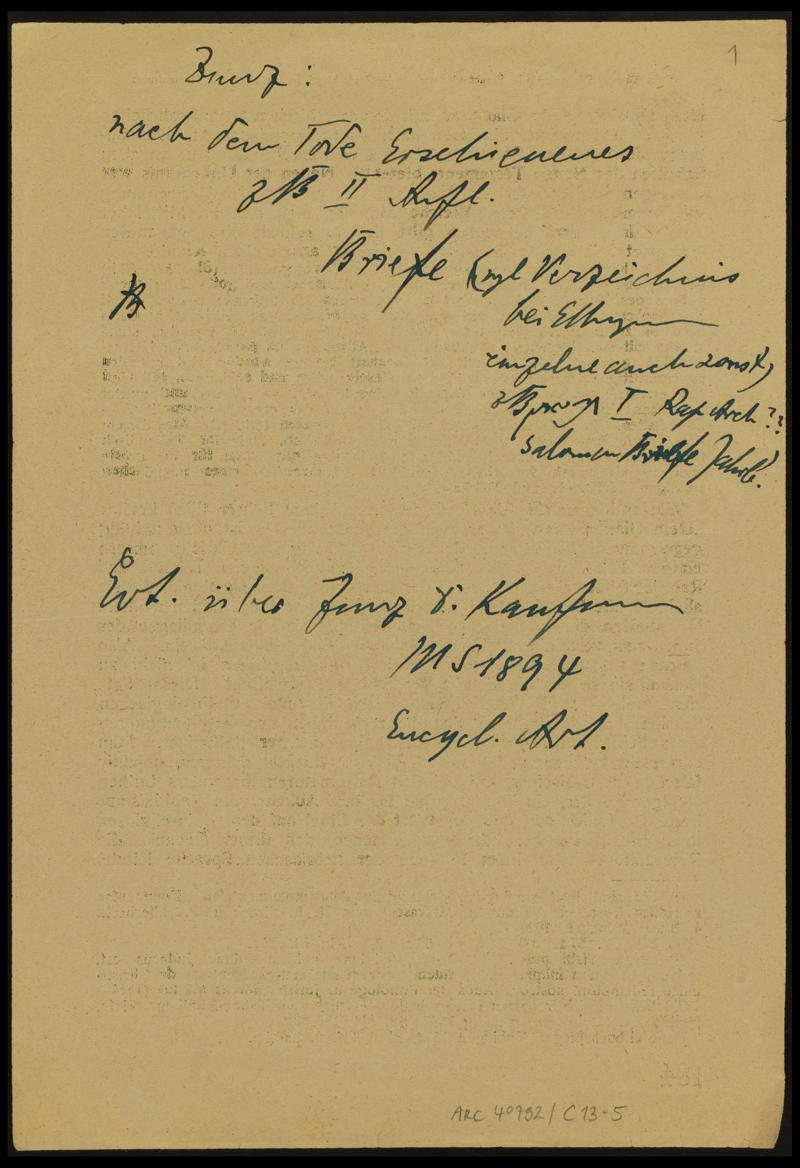 1
Zunz :
nach dem Tode Erschienenes
z B II Aufl.
Briefe (vgl Verzeichnis
B
bei Elbogen
einzelne auch sonst,
z B I Rap Arch ??
Salomon Briefe Jahrb.?
Art. über Zunz v. Kaufmann
MS 1894
Encycl. Art.
ARC 4º792 / C13-5